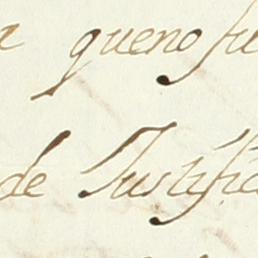 a queno fu
de Justific